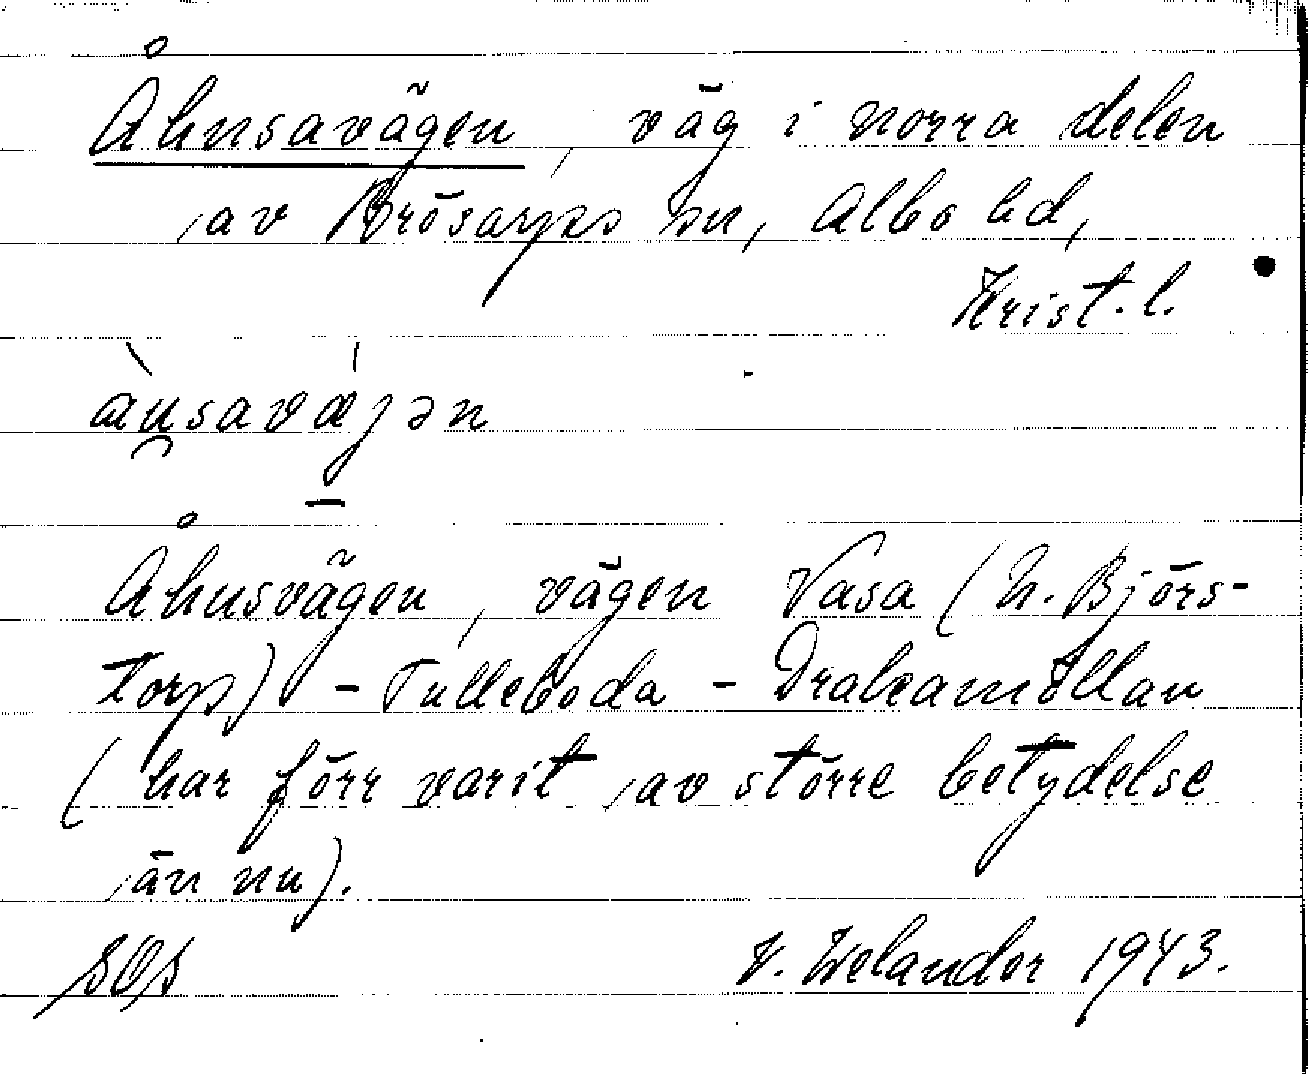 Åhusavägen, väg i norra delen
av Brösarps sn, Albo hd,
Krist. l.
Åhusvägen, vägen Vasa (N. Björs-
torp) - Tulleboda - Drakamöllan
(har förr varit av större betydelse
än nu).
SOS V. Welander 1943.